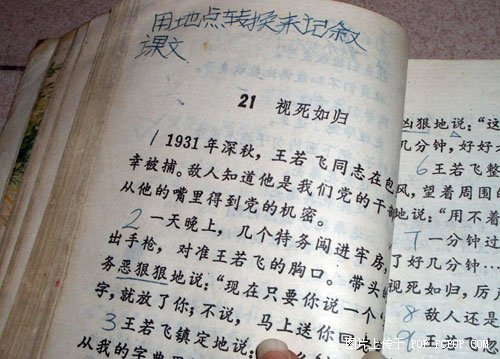 用地点转换来记叙
课文
21 视死如归
1 1931年深秋，王若飞同志在包
幸被捕。敌人知道他是我们党的干
从他的嘴里得到党的机密。
2 一天晚上，几个特务闯进牢房，
出手枪，对准王若飞的胸口。带头的
务恶狠狠地说：“现在只要你说一个“
字，就放了你；不说，马上送你回
3 王若飞镇定地说：
从我的字典里
凶狠地说：“这
几分钟，好好
6 王若飞整
风，望着周围
地说：“用不着
7 一分钟过
了好几分钟…
视死如归，厉
8 敌人还是
9 王若
图片上传于